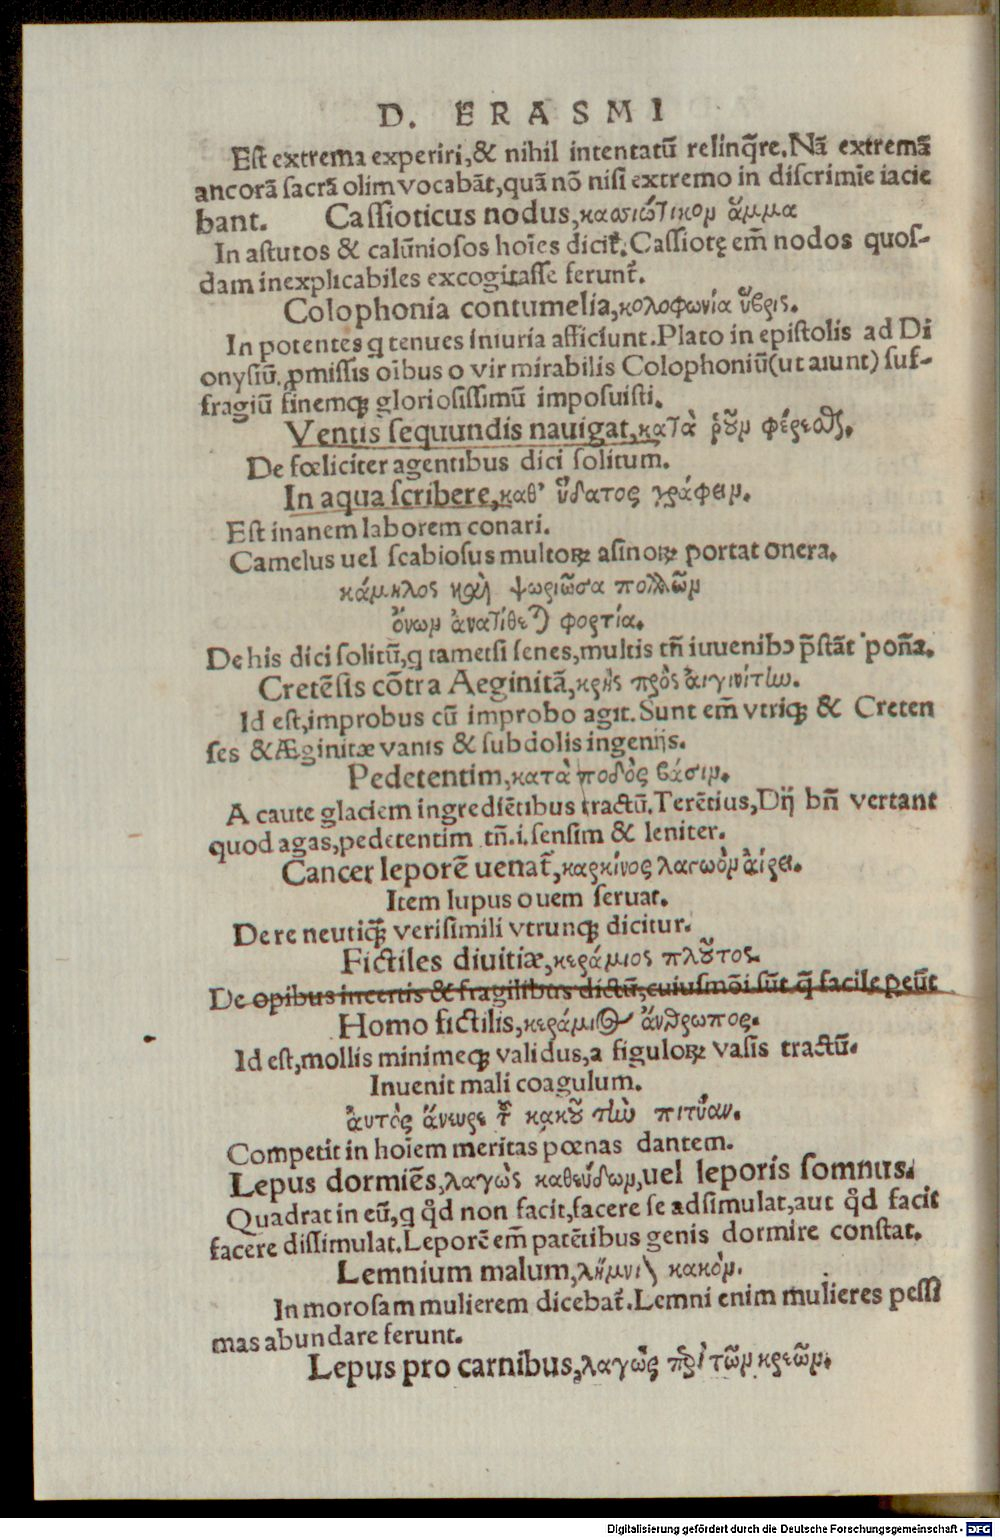 D. ERASMI
Est extrema experiri,& nihil intentatũ relinq̃re.Nã extremã
ancorã sacrã olim vocabãt,quã nõ nisi extremo in discrimīe iacie
bant. Cassioticus nodus,κασσιώτικον ἅμμα
In astutos & calũniosos hoīes dicit̃.Cassiotę em̃ nodos quos-
dam inexplicabiles excogitasse ferunt̃.
Colophonia contumelia,κολοφωνία ὕβρις.
In potentes q tenues iniuria afficiunt.Plato in epistolis ad Di
onysiũ.ꝓmissis oībus o vir mirabilis Colophoniũ(ut aiunt) suf-
fragiũ finemq; gloriosissimũ imposuisti.
Ventis sequundis nauigat,κατὰ ῥοῦν φέρεσθαι.
De fœliciter agentibus dici solitum.
In aqua scribere,καθ' ὕδατος γράφειν.
Est inanem laborem conari.
Camelus uel scabiosus multoꝝ asinoꝝ portat onera.
κάμηλος καὶ ψωριῶσα πολλῶν
ὄνων ἀνατίθεται φορτία.
De his dici solitũ,q tametsi senes,multis tñ iuuenibꝰ p̃stãt
Cretẽsis cõtra Aeginitã,κρὴς πρὸς ἀιγινίτην.
Id est,improbus cũ improbo agit.Sunt em̃ vtriq; & Creten
ses & Æginitæ vanis & subdolis ingenijs.
Pedetentim,κατὰ ποδὸς βάσιν.
A caute glaciem ingrediẽtibus tractũ.Terẽtius,Dij bñ vertant
quod agas,pedetentim tñ.i.sensim & leniter.
Cancer leporẽ uenat̃,καρκίνος λαγωὸν ἁίρει.
Item lupus ouem seruat.
De re neutiq̃; verisimili vtrunq; dicitur.
Fictiles diuitiæ,κεράμιος πλοῦτος.
De opibus incertis & fragilibus dictũ,cuiusmõi sũt q̃ facile peũt
Homo fictilis,κεράμιος ἄνθρωπος.
Id est,mollis minimeq; validus,a figuloꝝ vasis tractũ.
Inuenit mali coagulum.
ἀυτὸς ἅνευρε τοῦ κακοῦ τὴν πιτύαν.
Competit in hoīem meritas pœnas dantem.
Lepus dormiẽs,λαγὼς καθεύδων,uel leporis somnus.
Quadrat in eũ,q q̊d non facit,facere se adsimulat,aut q̊d facit
facere dissimulat.Leporẽ em̃ patẽtibus genis dormire constat.
Lemnium malum,λήμνιον κακὸν.
In morosam mulierem dicebat̃.Lemni enim mulieres pessi
mas abundare ferunt.
Lepus pro carnibus,λαγὼς περὶ τῶν κρεῶν.
Digitalisierung gefördert durch die Deutsche Forschungsgemeinschaft - DFG